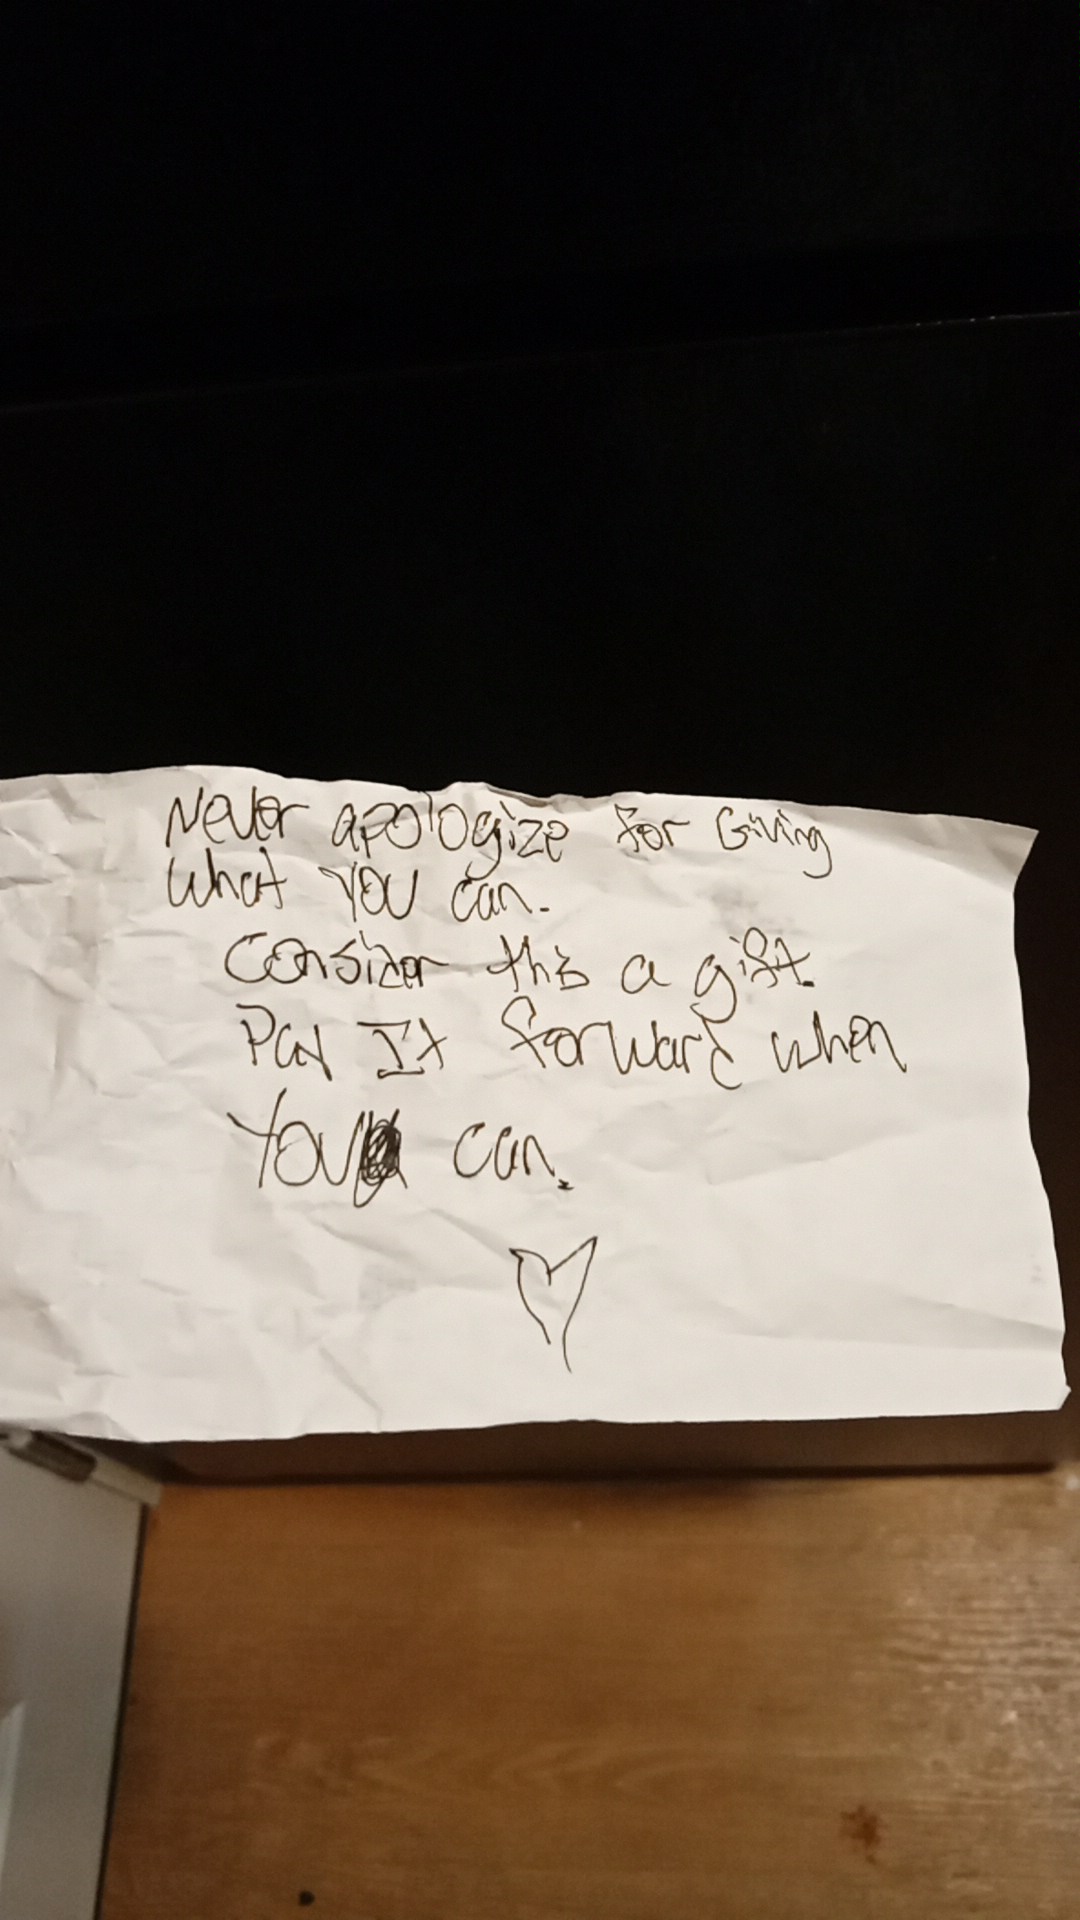 Never apologize for Giving
What you can.
Consider this a gift.
Pay It forward when
You can.